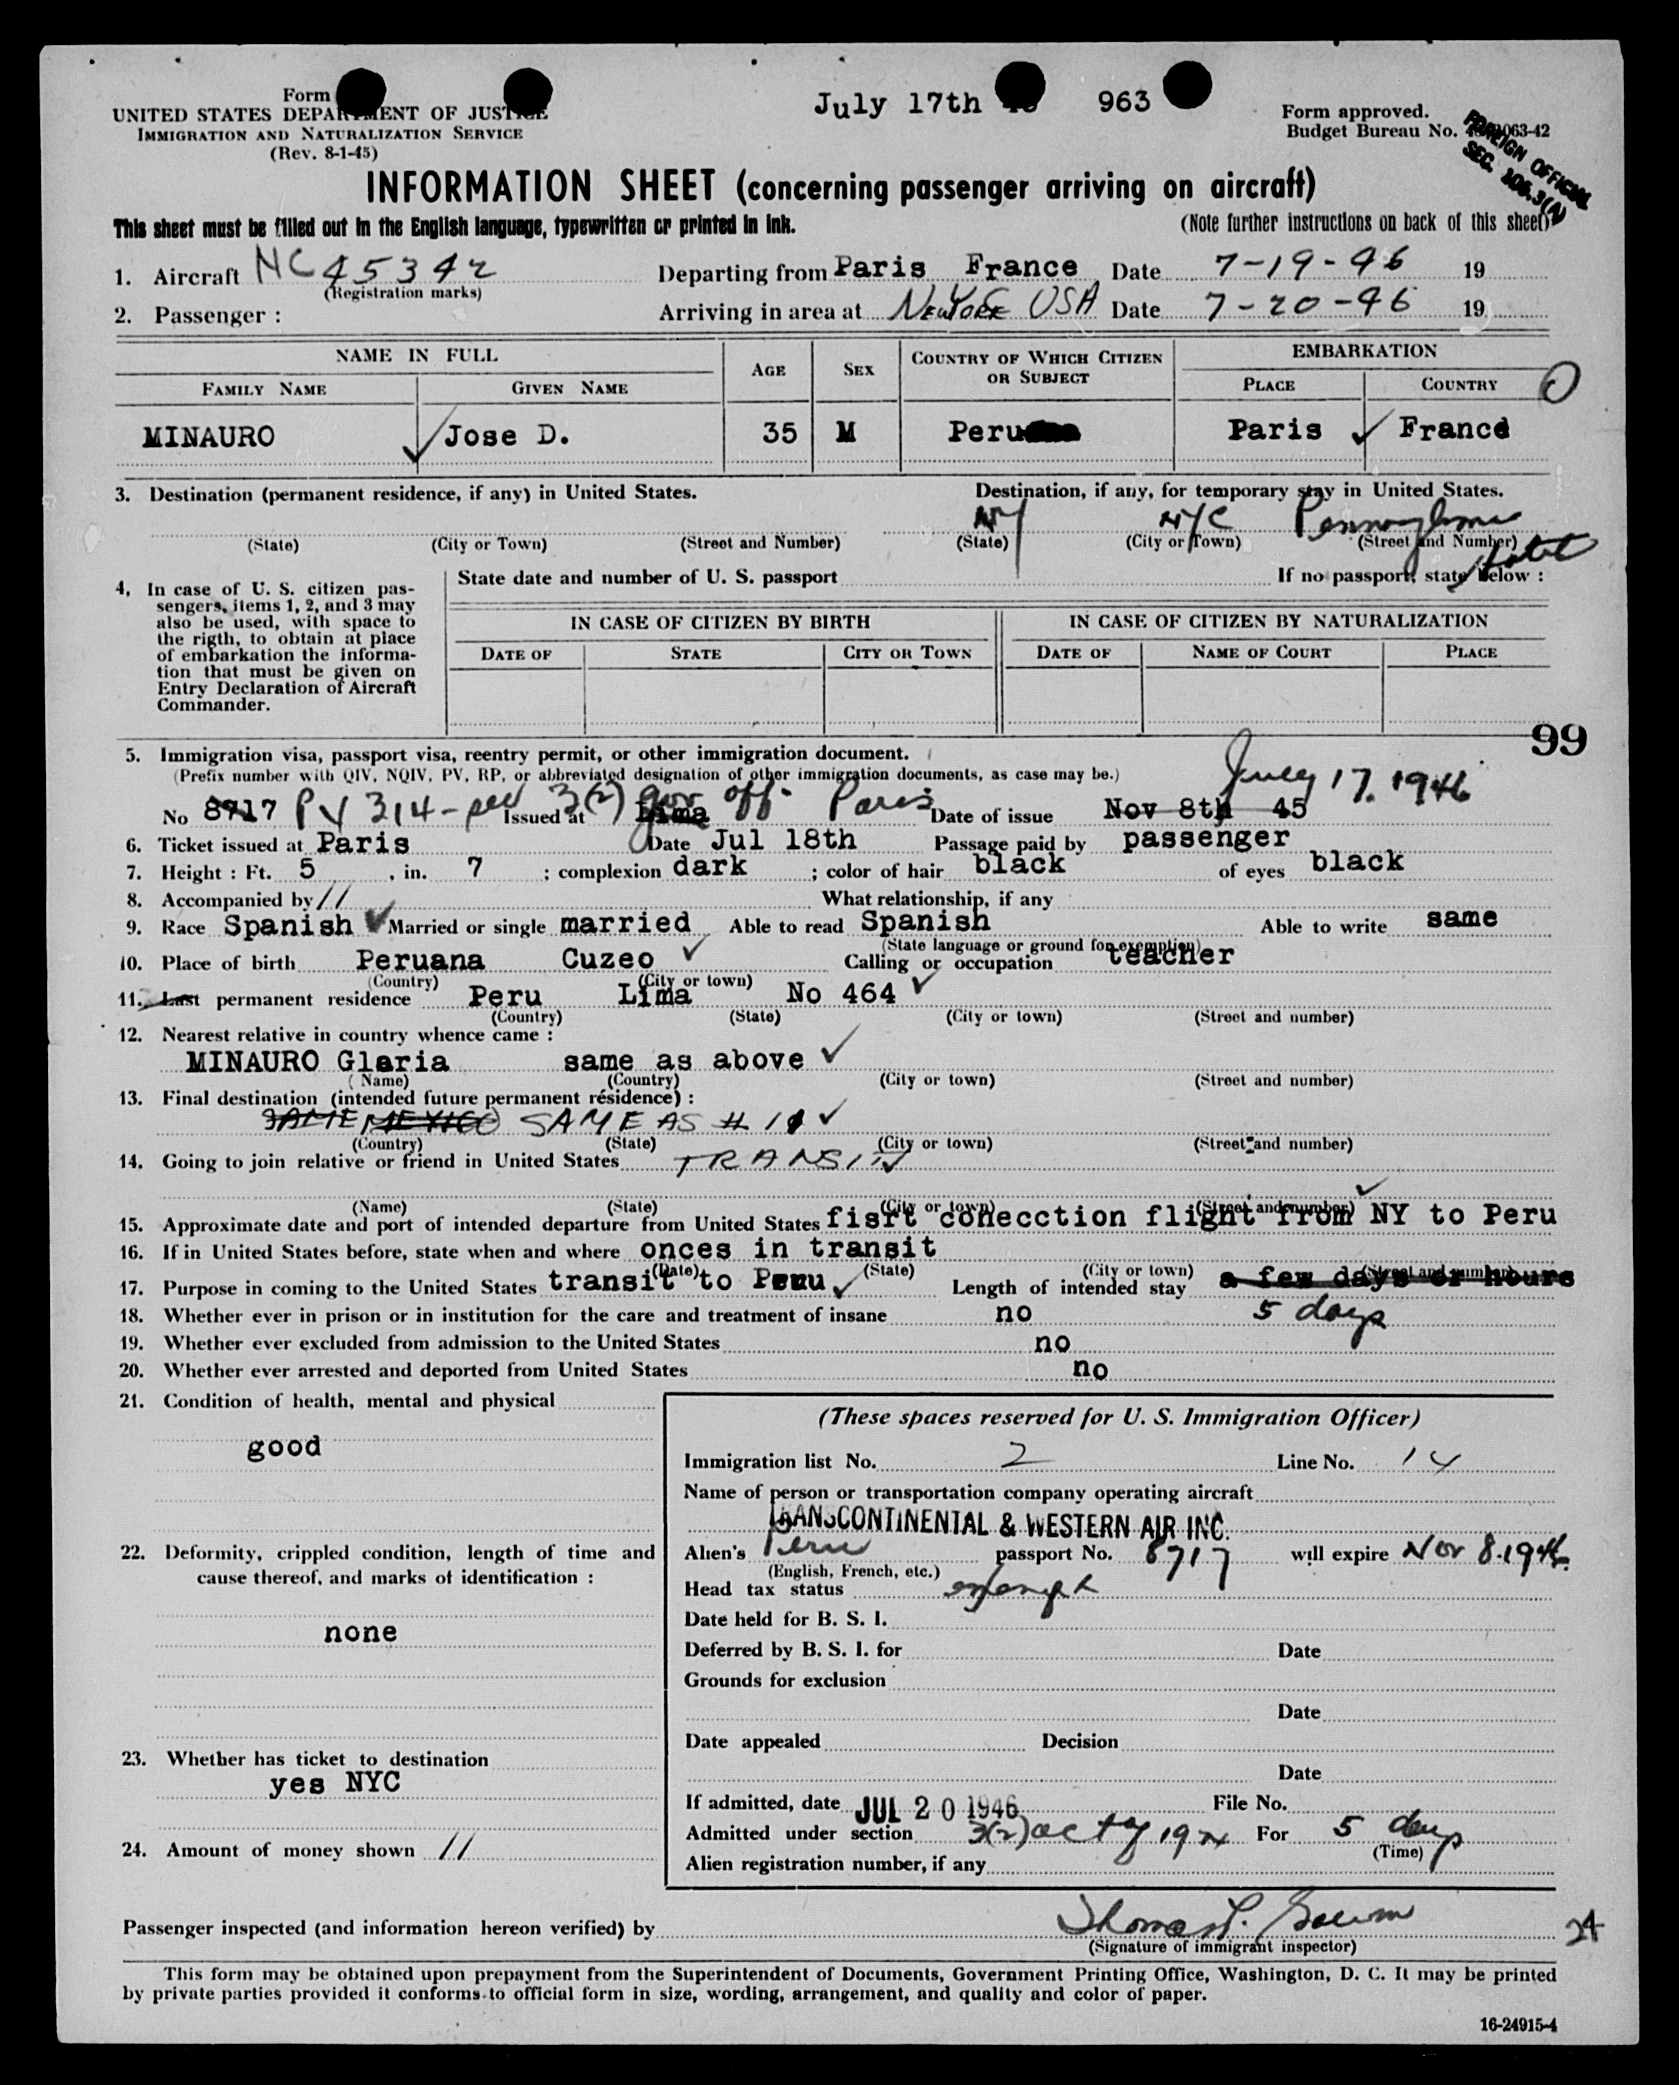 Form
UNITED STATES DEPARTMENT OF JUSTICE
IMMIGRATION AND NATURALIZATION SERVICE
(Rev. 8-1-45)
July 17th 963
Form approved.
Budget Bureau No. 063-42
FOREIGN OFFICIAL
SEC.
INFORMATION SHEET (concerning passenger arriving on aircraft)
This sheet must be filled out in the English language, typewritten or printed in ink.
(Note further instructions on back of this sheet)
1. Aircraft NC 45342 Departing from Paris France Date 7-19-46 19
(Registration marks)
2. Passenger : Arriving in area at New York USA Date 7-20-46 19
NAME IN FULL AGE SEX COUNTRY OF WHICH CITIZEN OR SUBJECT EMBARKATION
FAMILY NAME GIVEN NAME PLACE COUNTRY
MINAURO Jose D. 35 M Peru Paris France
3. Destination (permanent residence, if any) in United States. Destination, if any, for temporary stay in United States.
NY NYC Pennsylvania Hotel
(State) (City or Town) (Street and Number) (State) (City or Town) (Street and Number)
4, In case of U. S. citizen passengers, items 1, 2, and 3 may also be used, with space to the rigth, to obtain at place of embarkation the information that must be given on Entry Declaration of Aircraft Commander.
State date and number of U. S. passport If no passport, state below :
IN CASE OF CITIZEN BY BIRTH IN CASE OF CITIZEN BY NATURALIZATION
DATE OF STATE CITY OR TOWN DATE OF NAME OF COURT PLACE
99
5. Immigration visa, passport visa, reentry permit, or other immigration document.
(Prefix number with QIV, NQIV, PV, RP, or abbreviated designation of other immigration documents, as case may be.)
July 17. 1946
No 8717 PV 314 - sec 3(2) gov off. Issued at Lima Paris Date of issue Nov 8th 45
6. Ticket issued at Paris Date Jul 18th Passage paid by passenger
7. Height : Ft. 5 , in. 7 ; complexion dark ; color of hair black of eyes black
8. Accompanied by // What relationship, if any
9. Race Spanish Married or single married Able to read Spanish Able to write same
(State language or ground for exemption)
10. Place of birth Peruana Cuzeo Calling or occupation teacher
(Country) (City or town)
11. Last permanent residence Peru Lima No 464
(Country) (State) (City or town) (Street and number)
12. Nearest relative in country whence came :
MINAURO Gloria same as above
(Name) (Country) (City or town) (Street and number)
13. Final destination (intended future permanent résidence) :
SAME MEXICO SAME AS # 11
(Country) (State) (City or town) (Street and number)
14. Going to join relative or friend in United States TRANSIT
(Name) (State) (City or town) (Street and number)
15. Approximate date and port of intended departure from United States fisrt conecction flight from NY to Peru
16. If in United States before, state when and where onces in transit
(Date) (State) (City or town) (Street and number)
17. Purpose in coming to the United States transit to Peru Length of intended stay a few days or hours
5 days
18. Whether ever in prison or in institution for the care and treatment of insane no
19. Whether ever excluded from admission to the United States no
20. Whether ever arrested and deported from United States no
21. Condition of health, mental and physical
good
22. Deformity, crippled condition, length of time and cause thereof, and marks of identification :
none
23. Whether has ticket to destination
yes NYC
24. Amount of money shown //
(These spaces reserved for U. S. Immigration Officer)
Immigration list No. 2 Line No. 14
Name of person or transportation company operating aircraft
TRANSCONTINENTAL & WESTERN AIR INC.
Alien's Peru passport No. 8717 will expire Nov 8. 1946
(English, French, etc.)
Head tax status exempt
Date held for B. S. I.
Deferred by B. S. I. for Date
Grounds for exclusion
Date
Date appealed Decision
Date
If admitted, date JUL 20 1946 File No.
Admitted under section 3(2) act of 1924 For 5 days
(Time)
Alien registration number, if any
Passenger inspected (and information hereon verified) by
(Signature of immigrant inspector)
24
This form may be obtained upon prepayment from the Superintendent of Documents, Government Printing Office, Washington, D. C. It may be printed
by private parties provided it conforms to official form in size, wording, arrangement, and quality and color of paper.
16-24915-4